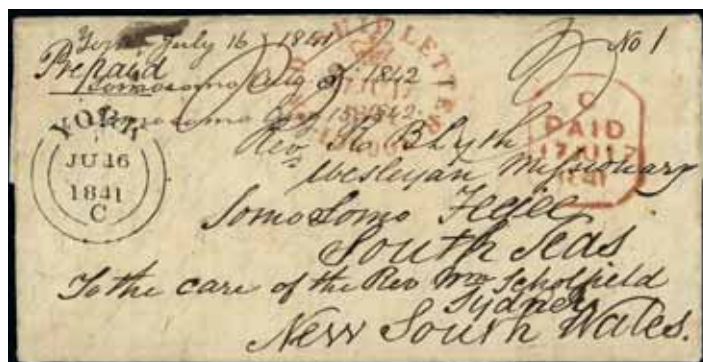 York July 16, 1841
No 1
Prepaid
Somosomo Aug 1842
Somosomo Aug 15 1842
SHIP LETTER
YORK
JU 16
1841
C
C
PAID
17 JU 17
1841
Rev Blyth
Wesleyan Missionary
Somosomo Feejee
South Seas
To the care of the Rev Mr Scholfield
Sydney
New South Wales.